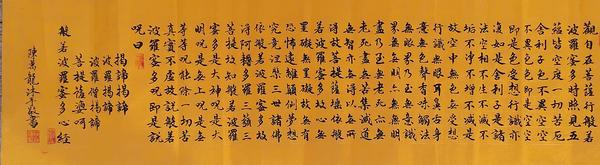 觀自在菩薩行深般若
波羅蜜多時照見五
蘊皆空度一切苦厄
舍利子色不異空空
不異色色即是空空
即是色受想行識亦
復如是舍利子是諸
法空相不生不滅不
垢不淨不增不減是
故空中無色無受想
行識無眼耳鼻舌身
意無色聲香味觸法
無眼界乃至無意識
界無無明亦無無明
盡乃至無老死亦無
老死盡無苦集滅道
無智亦無得以無所
得故菩提薩埵依般
若波羅蜜多故心無
罣礙無罣礙故無有
恐怖遠離顛倒夢想
究竟涅槃三世諸佛
依般若波羅蜜多故
得阿耨多羅三藐三
菩提故知般若波羅
蜜多是大神呪是大
明呪是無上呪是無
等等呪能除一切苦
真實不虛故說般若
波羅蜜多呪即說
呪曰
揭諦揭諦
波羅揭諦
波羅僧揭諦
菩提薩婆呵
般若波羅蜜多心經
陳萬龍沐手敬書